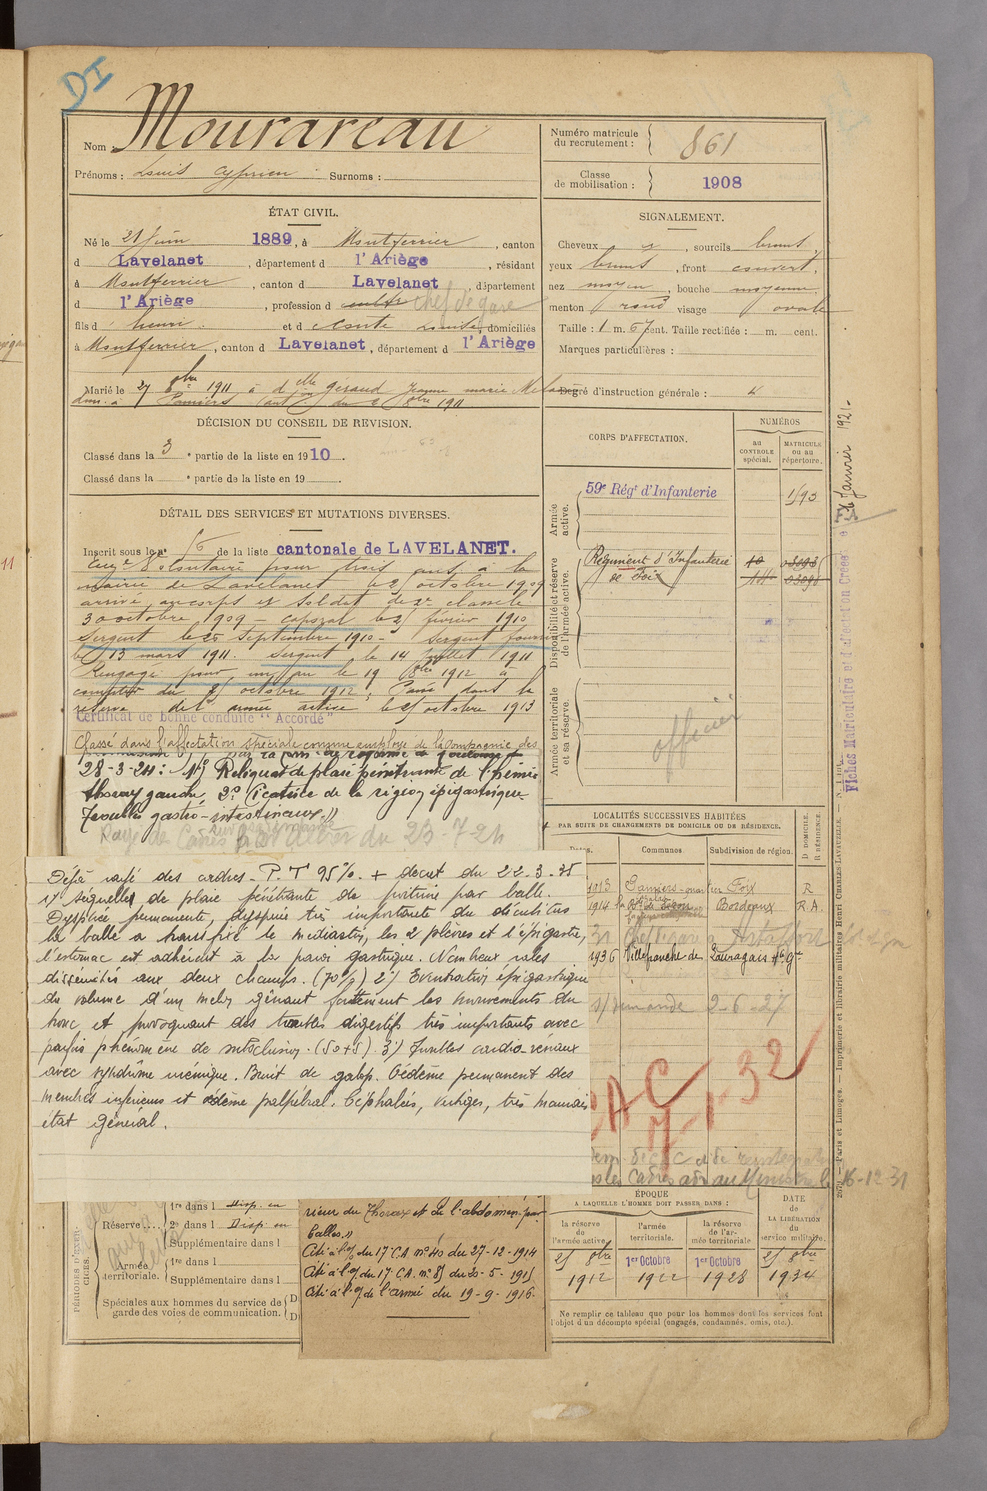 DI
Nom Mourareau
Prénoms : Louis Cyprien Surnoms :
Numéro matricule
du recrutement : 861
Classe
de mobilisation : 1908
ÉTAT CIVIL.
Né le 21 Juin 1889, à Montferrier, canton
d Lavelanet, département d l'Ariège, résidant
à Montferrier, canton d Lavelanet, département
d l'Ariège, profession d chef de gare
fils d henri et d domiciliés
à Montferrier, canton d Lavelanet, département d l'Ariège
Marié le 27 8bre 1911 à dlle Geraud Jeanne Marie
dom. à Pamiers 8bre 1911
SIGNALEMENT.
Cheveux, sourcils bruns
yeux bruns, front couvert,
nez moyen, bouche moyenne
menton rond visage ovale
Taille : 1 m. 67 cent. Taille rectifiée : m. cent.
Marques particulières :
Degré d'instruction générale :
DÉCISION DU CONSEIL DE REVISION.
Classé dans la 3e partie de la liste en 1910.
Classé dans la e partie de la liste en 19
DÉTAIL DES SERVICES ET MUTATIONS DIVERSES.
Inscrit sous le no 16 de la liste cantonale de LAVELANET.
Engé Volontaire pour trois ans à la
mairie de Lavelanet le 21 octobre 1909
arrivé au corps et soldat de 2e classe le
30 octobre 1909 – caporal le 21 février 1910
Sergent le 25 septembre 1910 – Sergent fourrier
le 13 mars 1911. Sergent le 14 Juillet 1911
Rengagé pour un an le 19 8bre 1912 à
compter du 21 octobre 1912. Passé dans la
réserve de l'armée active le 21 octobre 1913
Certificat de bonne conduite "Accordé"
Classé dans l'affectation spéciale comme employé de la Compagnie des
28-3-24 : 1º) Reliquat de plaie pénétrante de l'hémi
thorax gauche, 2º Cicatrice de la région épigastrique
Troubles gastro-intestinaux.))
Rayé des Cadres du 23-7-24
Déjà rayé des cadres – P.T 95% + décret du 22-3-35
1º séquelles de plaie pénétrante de poitrine par balle.
Dyspnée permanente, dyspnée très importante du décubitus
la balle a transfixé le médiastin, les 2 plèvres et l'épigastre,
l'estomac est adhérent à la paroi gastrique. Nombreux rales
disséminés aux deux champs. (70%) 2º) Eventration épigastrique
du volume d'un melon gênant fortement les mouvements du
tronc et provoquant des troubles digestifs très importants avec
parfois phénomène de subocclusion. (50+5) 3º) Troubles cardio-rénaux
avec syndrome urémique. Bruit de galop. Oedème permanent des
membres inférieurs et oedème palpébral. Céphalées, vertiges, très mauvais
état général.
CORPS D'AFFECTATION.
NUMÉROS
au
CONTROLE
spécial.
MATRICULE
ou au
répertoire.
Armée
active.
59e Régt d'Infanterie 1193
Disponibilité et réserve
de l'armée active.
Régiment d'Infanterie
de Foix
Armée territoriale
et sa réserve.
officier
LOCALITÉS SUCCESSIVES HABITÉES
PAR SUITE DE CHANGEMENTS DE DOMICILE OU DE RÉSIDENCE.
Dates. Communes. Subdivision de région. D DOMICILE. R RÉSIDENCE.
1913 Pamiers Foix R
1914 Bordeaux R.A.
1936 Villefranche de Lauragais Hte Gne
s/ demande 2-6-27
CAC
7-1-32
16-12-31
Fiches Matriculaire et d'affectation Créées le
Janvier 1921-
Paris et Limoges. — Imprimerie et librairie militaires Henri CHARLES-LAVAUZELLE.
PÉRIODES D'EXERCICES.
Réserve
1re dans l Disp. en
2e dans l Disp. en
Supplémentaire dans l
Armée
territoriale.
1re dans l
Supplémentaire dans l
Spéciales aux hommes du service de
garde des voies de communication.
rieur du Thorax et de l'abdomen par
balles.))
Cité à l'o/ du 17 C.A. nº 40 du 27-12-1914
Cité à l'o/ du 17 C.A. nº 85 du 20-5-1915
Cité à l'o/ de l'armée du 19-9-1916.
ÉPOQUE
A LAQUELLE L'HOMME DOIT PASSER DANS :
la réserve
de
l'armée active.
l'armée
territoriale.
la réserve
de l'ar-
mée territoriale
DATE
de
LA LIBÉRATION
du
service militaire.
21 8bre
1912
1er Octobre
1922
1er Octobre
1928
21 8bre
1934
Ne remplir ce tableau que pour les hommes dont les services font
l'objet d'un décompte spécial (engagés, condamnés, omis, etc.).